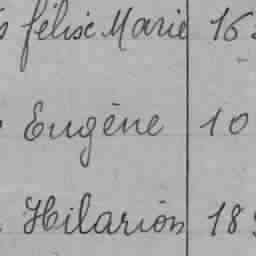 félise Marie 16
Eugène 10
Hilarion 18